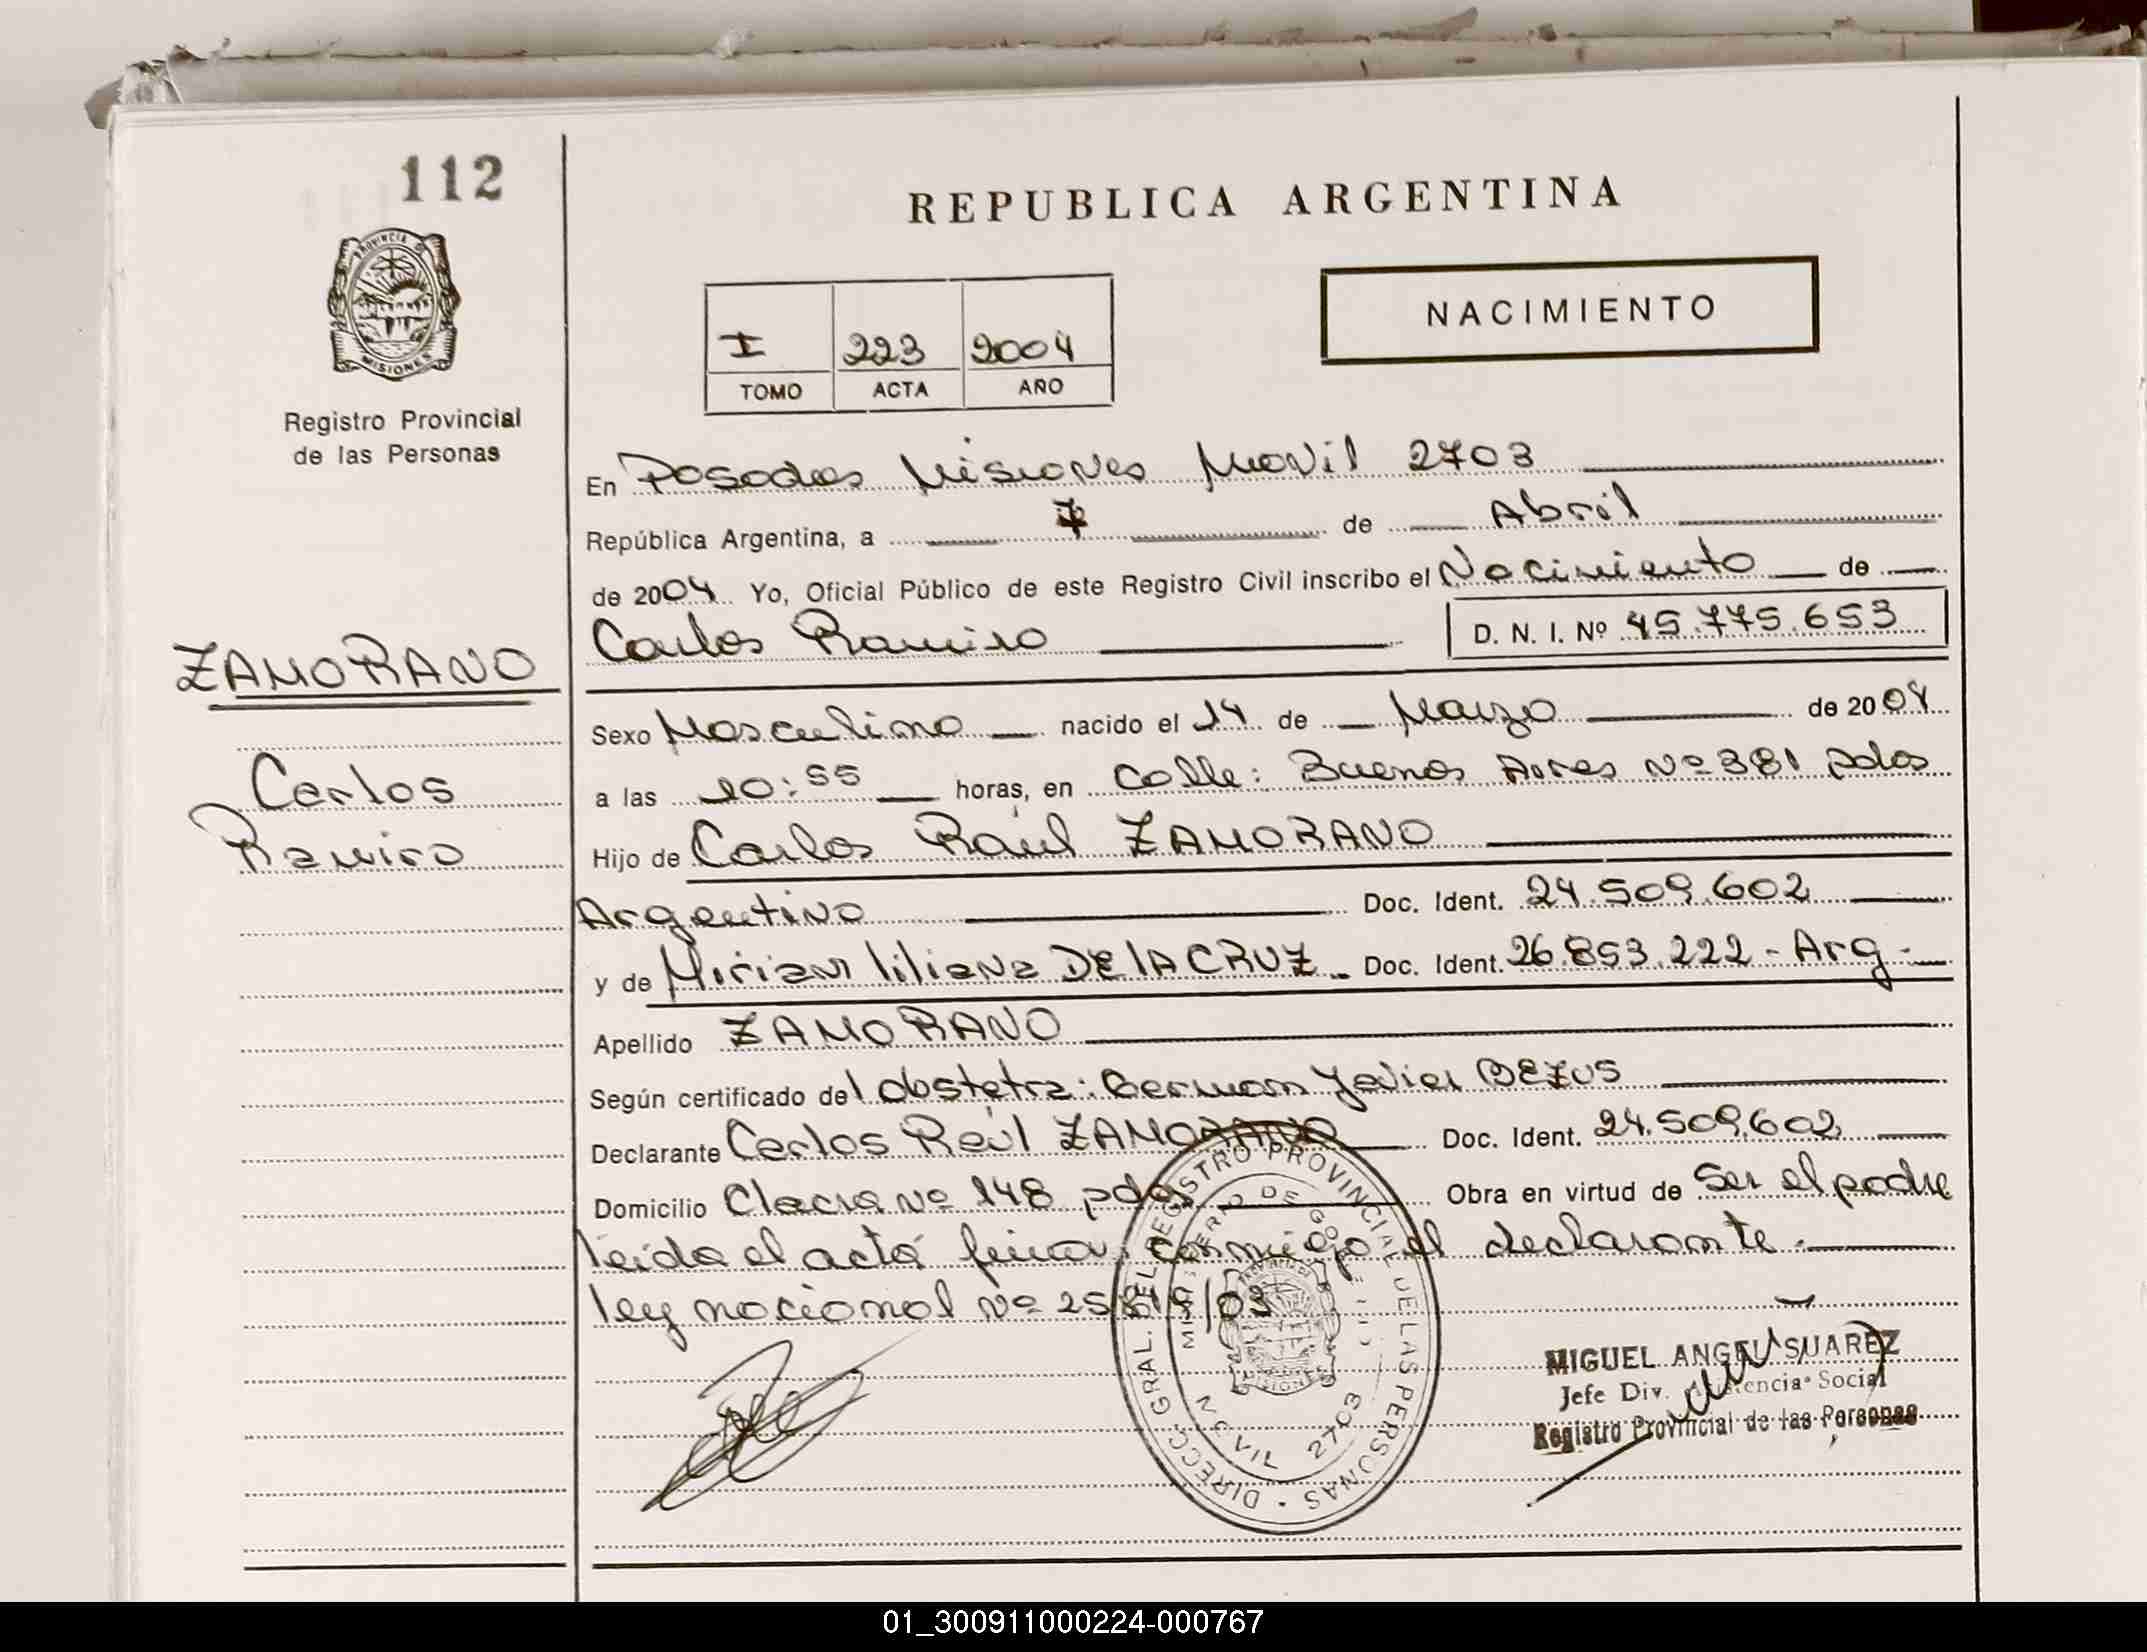 112
REPUBLICA ARGENTINA
PROVINCIA DE
MISIONES
NACIMIENTO
I 223 2004
TOMO ACTA AÑO
Registro Provincial
de las Personas
En Posadas Misiones Movil 2703
República Argentina, a 7 de Abril
de 2004 Yo, Oficial Público de este Registro Civil inscribo el Nacimiento de
Carlos Ramiro D. N. I. Nº 45.775.653
ZAMORANO
Carlos
Ramiro
Sexo Masculino nacido el 14 de Marzo de 2004
a las 10:55 horas, en Calle: Buenos Aires Nº 381 pdas
Hijo de Carlos Raúl ZAMORANO
Argentino Doc. Ident. 24.509.602
y de Miriam liliana DE lA CRUZ Doc. Ident. 26.853.222 - Arg.
Apellido ZAMORANO
Según certificado del obstetra: German Javier BEZUS
Declarante Carlos Raúl ZAMORANO Doc. Ident. 24.509.602
Domicilio Chacra Nº 148 pdas Obra en virtud de ser el padre
leída el acta firma conmigo el declarante.
ley nacional Nº 25819/03
DIRECC. GRAL. DEL REGISTRO PROVINCIAL DE LAS PERSONAS
MOVIL 2703
MIGUEL ANGEL SUAREZ
Jefe Div. Asistencia Social
Registro Provincial de las Personas
01_300911000224-000767